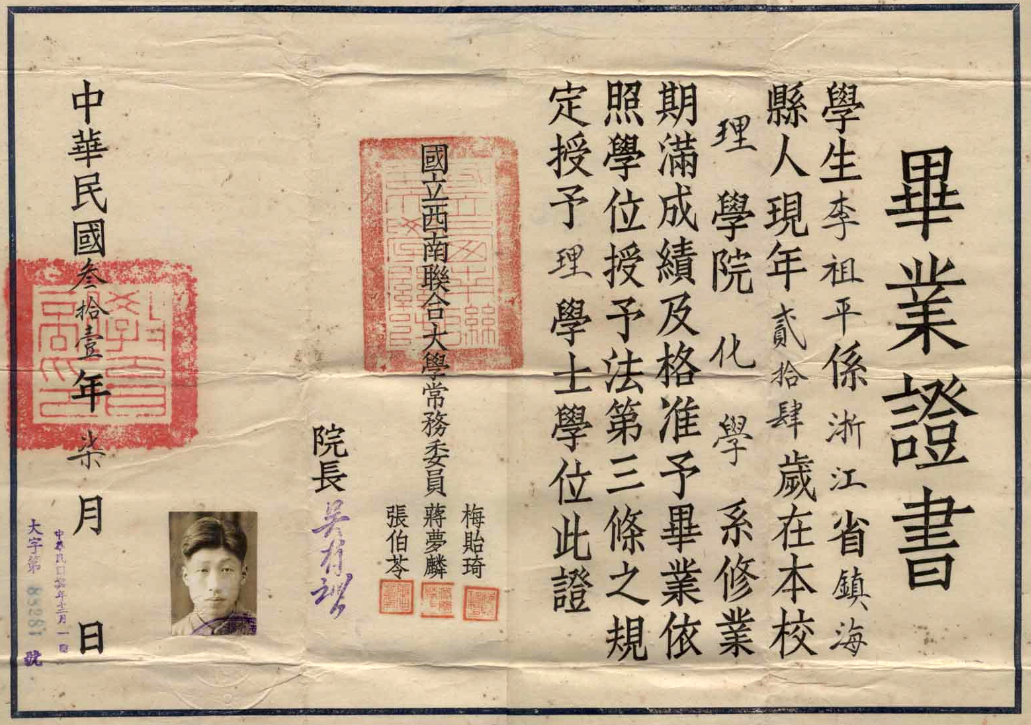 畢業證書
學生李祖平係浙江省鎮海
縣人現年貳拾肆歲在本校
理學院化學系修業
期滿成績及格准予畢業依
照學位授予法第三條之規
定授予理學士學位此證
國立西南聯合大學常務委員
梅貽琦
蔣夢麟
張伯苓
院長
吳有訓
中華民國叁拾壹年柒月日
大字第
號